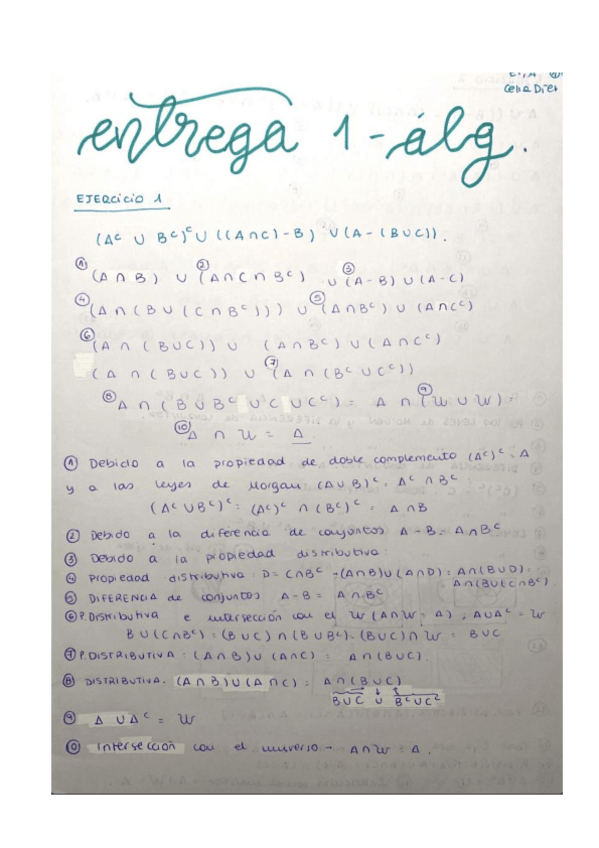 Celia Diez
entrega 1 - álg.
EJERCICIO 1.
(Aᶜ ∪ Bᶜ)ᶜ ∪ ((A∩C) - B) ∪ (A - (B∪C)).
① (A ∩ B) ∪ ② (A ∩ C ∩ Bᶜ) ∪ ③ (A - B) ∪ (A - C)
④ (A ∩ (B ∪ (C ∩ Bᶜ))) ∪ ⑤ (A∩Bᶜ) ∪ (A∩Cᶜ)
⑥ (A ∩ (B∪C)) ∪ (A∩Bᶜ) ∪ (A∩Cᶜ)
(A ∩ (B∪C)) ∪ ⑦ (A ∩ (Bᶜ ∪ Cᶜ))
⑧ A ∩ (B ∪ Bᶜ ∪ C ∪ Cᶜ) = A ∩ ⑨ (U ∪ U) =
⑩ A ∩ U = A
① Debido a la propiedad de doble complemento (Aᶜ)ᶜ = A
y a las leyes de Morgan (A∪B)ᶜ = Aᶜ ∩ Bᶜ :
(Aᶜ ∪ Bᶜ)ᶜ = (Aᶜ)ᶜ ∩ (Bᶜ)ᶜ = A ∩ B
② Debido a la diferencia de conjuntos A - B = A ∩ Bᶜ
③ Debido a la propiedad distributiva :
④ Propiedad distributiva : D = C∩Bᶜ → (A∩B)∪(A∩D) = A∩(B∪D) =
A∩(B∪(C∩Bᶜ).
⑤ DIFERENCIA de conjuntos A - B = A ∩ Bᶜ
⑥ P. Distributiva e intersección con el U (A∩U = A) , A∪Aᶜ = U
B ∪ (C∩Bᶜ) = (B∪C) ∩ (B∪Bᶜ) = (B∪C) ∩ U = B∪C
⑦ P. DISTRIBUTIVA : (A∩B) ∪ (A∩C) = A∩(B∪C).
⑧ DISTRIBUTIVA. (A∩B)∪(A∩C) = A∩(B∪C)
B∪C ∪ Bᶜ∪Cᶜ
⑨ A ∪ Aᶜ = U
⑩ Intersección con el universo → A∩U = A.